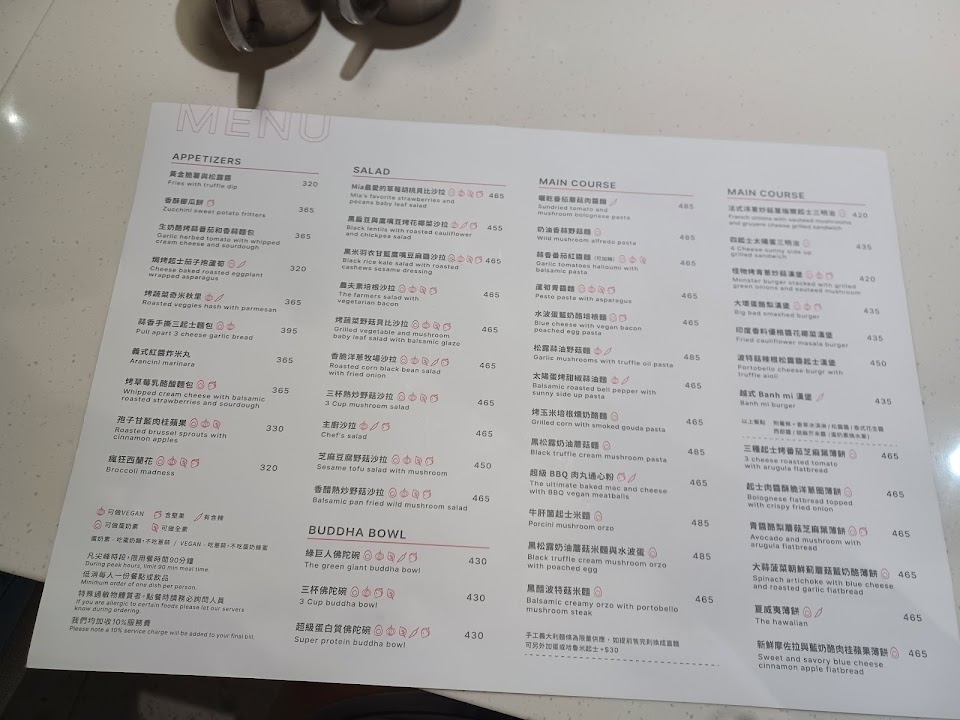 MENU
APPETIZERS
黃金脆薯與松露醬
Fries with truffle dip 320
香酥櫛瓜餅
Zucchini sweet potato fritters 365
生奶酪烤蒜番茄和香蒜麵包
Garlic herbed tomato with whipped 365
cream cheese and sourdough
焗烤起士茄子捲蘆筍
Cheese baked roasted eggplant 320
wrapped asparagus
烤蔬菜奇米秋里
Roasted veggies hash with parmesan 365
蒜香手撕三起士麵包
Pull apart 3 cheese garlic bread 395
義式紅醬炸米丸
Arancini marinara 365
烤草莓乳酪酸麵包
Whipped cream cheese with balsamic 365
roasted strawberries with sourdough
孢子甘藍肉桂蘋果
Roasted brussel sprouts with 330
cinnamon apples
瘋狂西蘭花
Broccoli madness 320
可做VEGAN 含堅果 有含辣
可做蛋奶素 可做全素
蛋奶素 - 吃蛋奶類,不吃蔥蒜 / VEGAN - 吃蔥蒜,不吃蛋奶蜂蜜
凡尖峰時段,限用餐時間90分鐘
During peak hours, limit 90 min meal time.
低消每人一份餐點或飲品
Minimum order of one dish per person.
特殊過敏物體質者,點餐時請務必詢問人員
If you are allergic to certain foods please let our servers
know during ordering.
我們均加收10%服務費
Please note a 10% service charge will be added to your final bill.
SALAD
Mia最愛的草莓胡桃貝比沙拉 465
Mia's favorite strawberries and
pecans baby leaf salad
黑扁豆與鷹嘴豆烤花椰菜沙拉 455
Black lentils with roasted cauliflower
and chickpea salad
黑米羽衣甘藍鷹嘴豆麻醬沙拉 465
Black rice kale salad with roasted
cashews sesame dressing
農夫素培根沙拉 465
The farmers salad with
vegetarian bacon
烤蔬菜野菇貝比沙拉 465
Grilled vegetable and mushroom
baby leaf salad with balsamic glaze
香脆洋蔥牧場沙拉 465
Roasted corn black bean salad
with fried onion
三杯熱炒野菇沙拉 465
3 Cup mushroom salad
主廚沙拉 465
Chef's salad
芝麻豆腐野菇沙拉 450
Sesame tofu salad with mushroom
香醋熱炒野菇沙拉 465
Balsamic pan fried wild mushroom salad
BUDDHA BOWL
綠巨人佛陀碗 430
The green giant buddha bowl
三杯佛陀碗 430
3 Cup buddha bowl
超級蛋白質佛陀碗 430
Super protein buddha bowl
MAIN COURSE
曬乾番茄蘑菇肉醬麵 485
Sundried tomato and
mushroom bolognese pasta
奶油香蒜野菇麵 465
Wild mushroom alfredo pasta
蒜香番茄紅醬麵 (可加辣) 465
Garlic tomatoes halloumi with
balsamic pasta
蘆筍青醬麵 465
Pesto pasta with asparagus
水波蛋藍奶酪培根麵 465
Blue cheese with vegan bacon
poached egg pasta
松露蒜油野菇麵 485
Garlic mushrooms with truffle oil pasta
太陽蛋烤甜椒蒜油麵 465
Balsamic roasted bell pepper with
sunny side up pasta
烤玉米培根燻奶酪麵 465
Grilled corn with smoked gouda pasta
黑松露奶油蘑菇麵 465
Black truffle cream mushroom pasta
超級 BBQ 肉丸通心粉 465
The ultimate baked mac and cheese
with BBQ vegan meatballs
牛肝菌起士米麵 485
Porcini mushroom orzo
黑松露奶油蘑菇米麵與水波蛋 485
Black truffle cream mushroom orzo
with poached egg
黑醋波特菇米麵 465
Balsamic creamy orzo with portobello
mushroom steak
手工義大利麵條為限量供應, 如提前售完則換成直麵
可另外加蛋或哈魯米起士+$30
MAIN COURSE
法式洋蔥炒菇葛瑞爾起士三明治 420
French onions with sauteed mushrooms
and gruyere cheese grilled sandwich
四起士太陽蛋三明治 435
4 Cheese sunny side up
grilled sandwich
怪物烤青蔥炒菇漢堡 420
Monster burger stacked with grilled
green onions and sauteed mushroom
大壞蛋酪梨漢堡 435
Big bad smashed burger
印度香料優格醬花椰菜漢堡 435
Fried cauliflower masala burger
波特菇辣根松露醬起士漢堡 450
Portobello cheese burgr with
truffle aioli
越式 Banh mi 漢堡 435
Banh mi burger
三種起士烤番茄芝麻葉薄餅 465
3 cheese roasted tomato
with arugula flatbread
起士肉醬酥脆洋蔥圈薄餅 465
Bolognese flatbread topped
with crispy fried onion
青醬酪梨蘑菇芝麻葉薄餅 465
Avocado and mushroom with
arugula flatbread
大蒜菠菜朝鮮薊蘑菇藍奶酪薄餅 465
Spinach artichoke with blue cheese
and roasted garlic flatbread
夏威夷薄餅 465
The hawaiian
新鮮摩佐拉與藍奶酪肉桂蘋果薄餅 465
Sweet and savory blue cheese
cinnamon apple flatbread